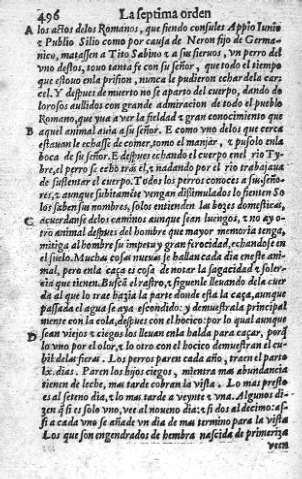 496 La septima orden
A los años delos Romanos, que siendo consules Appio Iunio
z Publio Silio como por causa de Neron fijo de Germa-
nico, matassen a Tito Sabino z a sus siervos, vn perro del
vno destos, touo tanta fe con su señor, que todo el tiempo
que estouo enla prision, nunca le pudieron echar dela car-
cel. Y despues de muerto no se aparto del cuerpo, dando do
lorosos aullidos con grande admiracion de todo el pueblo
Romano, que yua a ver la fieldad z gran conocimiento que
B aquel animal auia a su señor. E como vno delos que cerca
estauan le echasse de comer, tomo el manjar, z pusolo enla
boca de su señor. E despues echando el cuerpo enel rio Ty-
bre, el perro se echo tras el, z nadando por el rio trabajaua
de sustentar el cuerpo. Todos los perros conocen a sus seño-
res, z aunque subitamẽte vengan dissimulados lo sienten So
los saben sus nombres, solos entienden las bozes domesticas,
C acuerdanse delos caminos aunque sean luengos, z no ay o-
tro animal despues del hombre que mayor memoria tenga,
mitiga al hombre su impetu y gran ferocidad, echandose en
el suelo. Muchas cosas nueuas se hallan cada dia eneste ani-
mal, pero enla caça es cosa de notar la sagacidad z soler-
cia que tienen. Buscã el rastro, z siguenle lleuando dela cuer
da al que lo trae hazia la parte donde esta la caça, aunque
passada el agua se aya escondido: y demuestrala principal
mente con la cola, despues con el hocico: por lo qual aunque
sean viejos z ciegos los lleuan enla halda para caçar, porq̃
D lo vno por el olor, z lo otro con el hocico demuestran el cu-
bil delas fieras. Los perros paren cada año, traen el parto
lx. dias. Paren los hijos ciegos, mientra mas abundancia
tienen de leche, mas tarde cobran la vista. Lo mas presto
es al seteno dia, z lo mas tarde a veynte z vna. Algunos di-
zen q̃ si es solo vno, vee al noueno dia: z si dos al decimo: assi
a cada vno se añade vn dia de mas termino para la vista
Los que son engendrados de hembra nascida de primeriza
veen